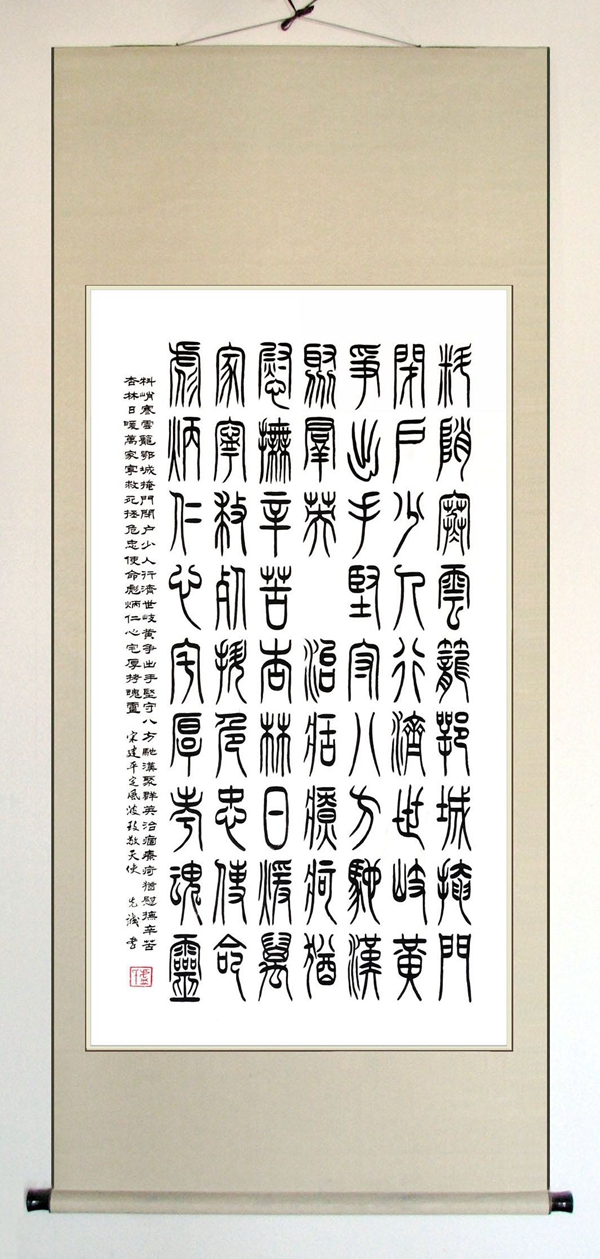 料陗寒雲籠鄂城掩門
閉戶少人行濟世岐黃
爭出手堅守八方馳漢
聚羣英 治疴猶
慰撫辛苦杏林日煖萬
家寧救死拯危忠使命
彪炳仁心宅厚考魂靈
料峭寒雲籠鄂城掩門閉户少人行濟世岐黃爭出手堅守八方馳漢聚群英治痼疴猶慰撫辛苦
杏林日暖萬家寧救死拯危忠使命彪炳仁心宅厚拷魂靈 宋建平定風波致敬天使 書